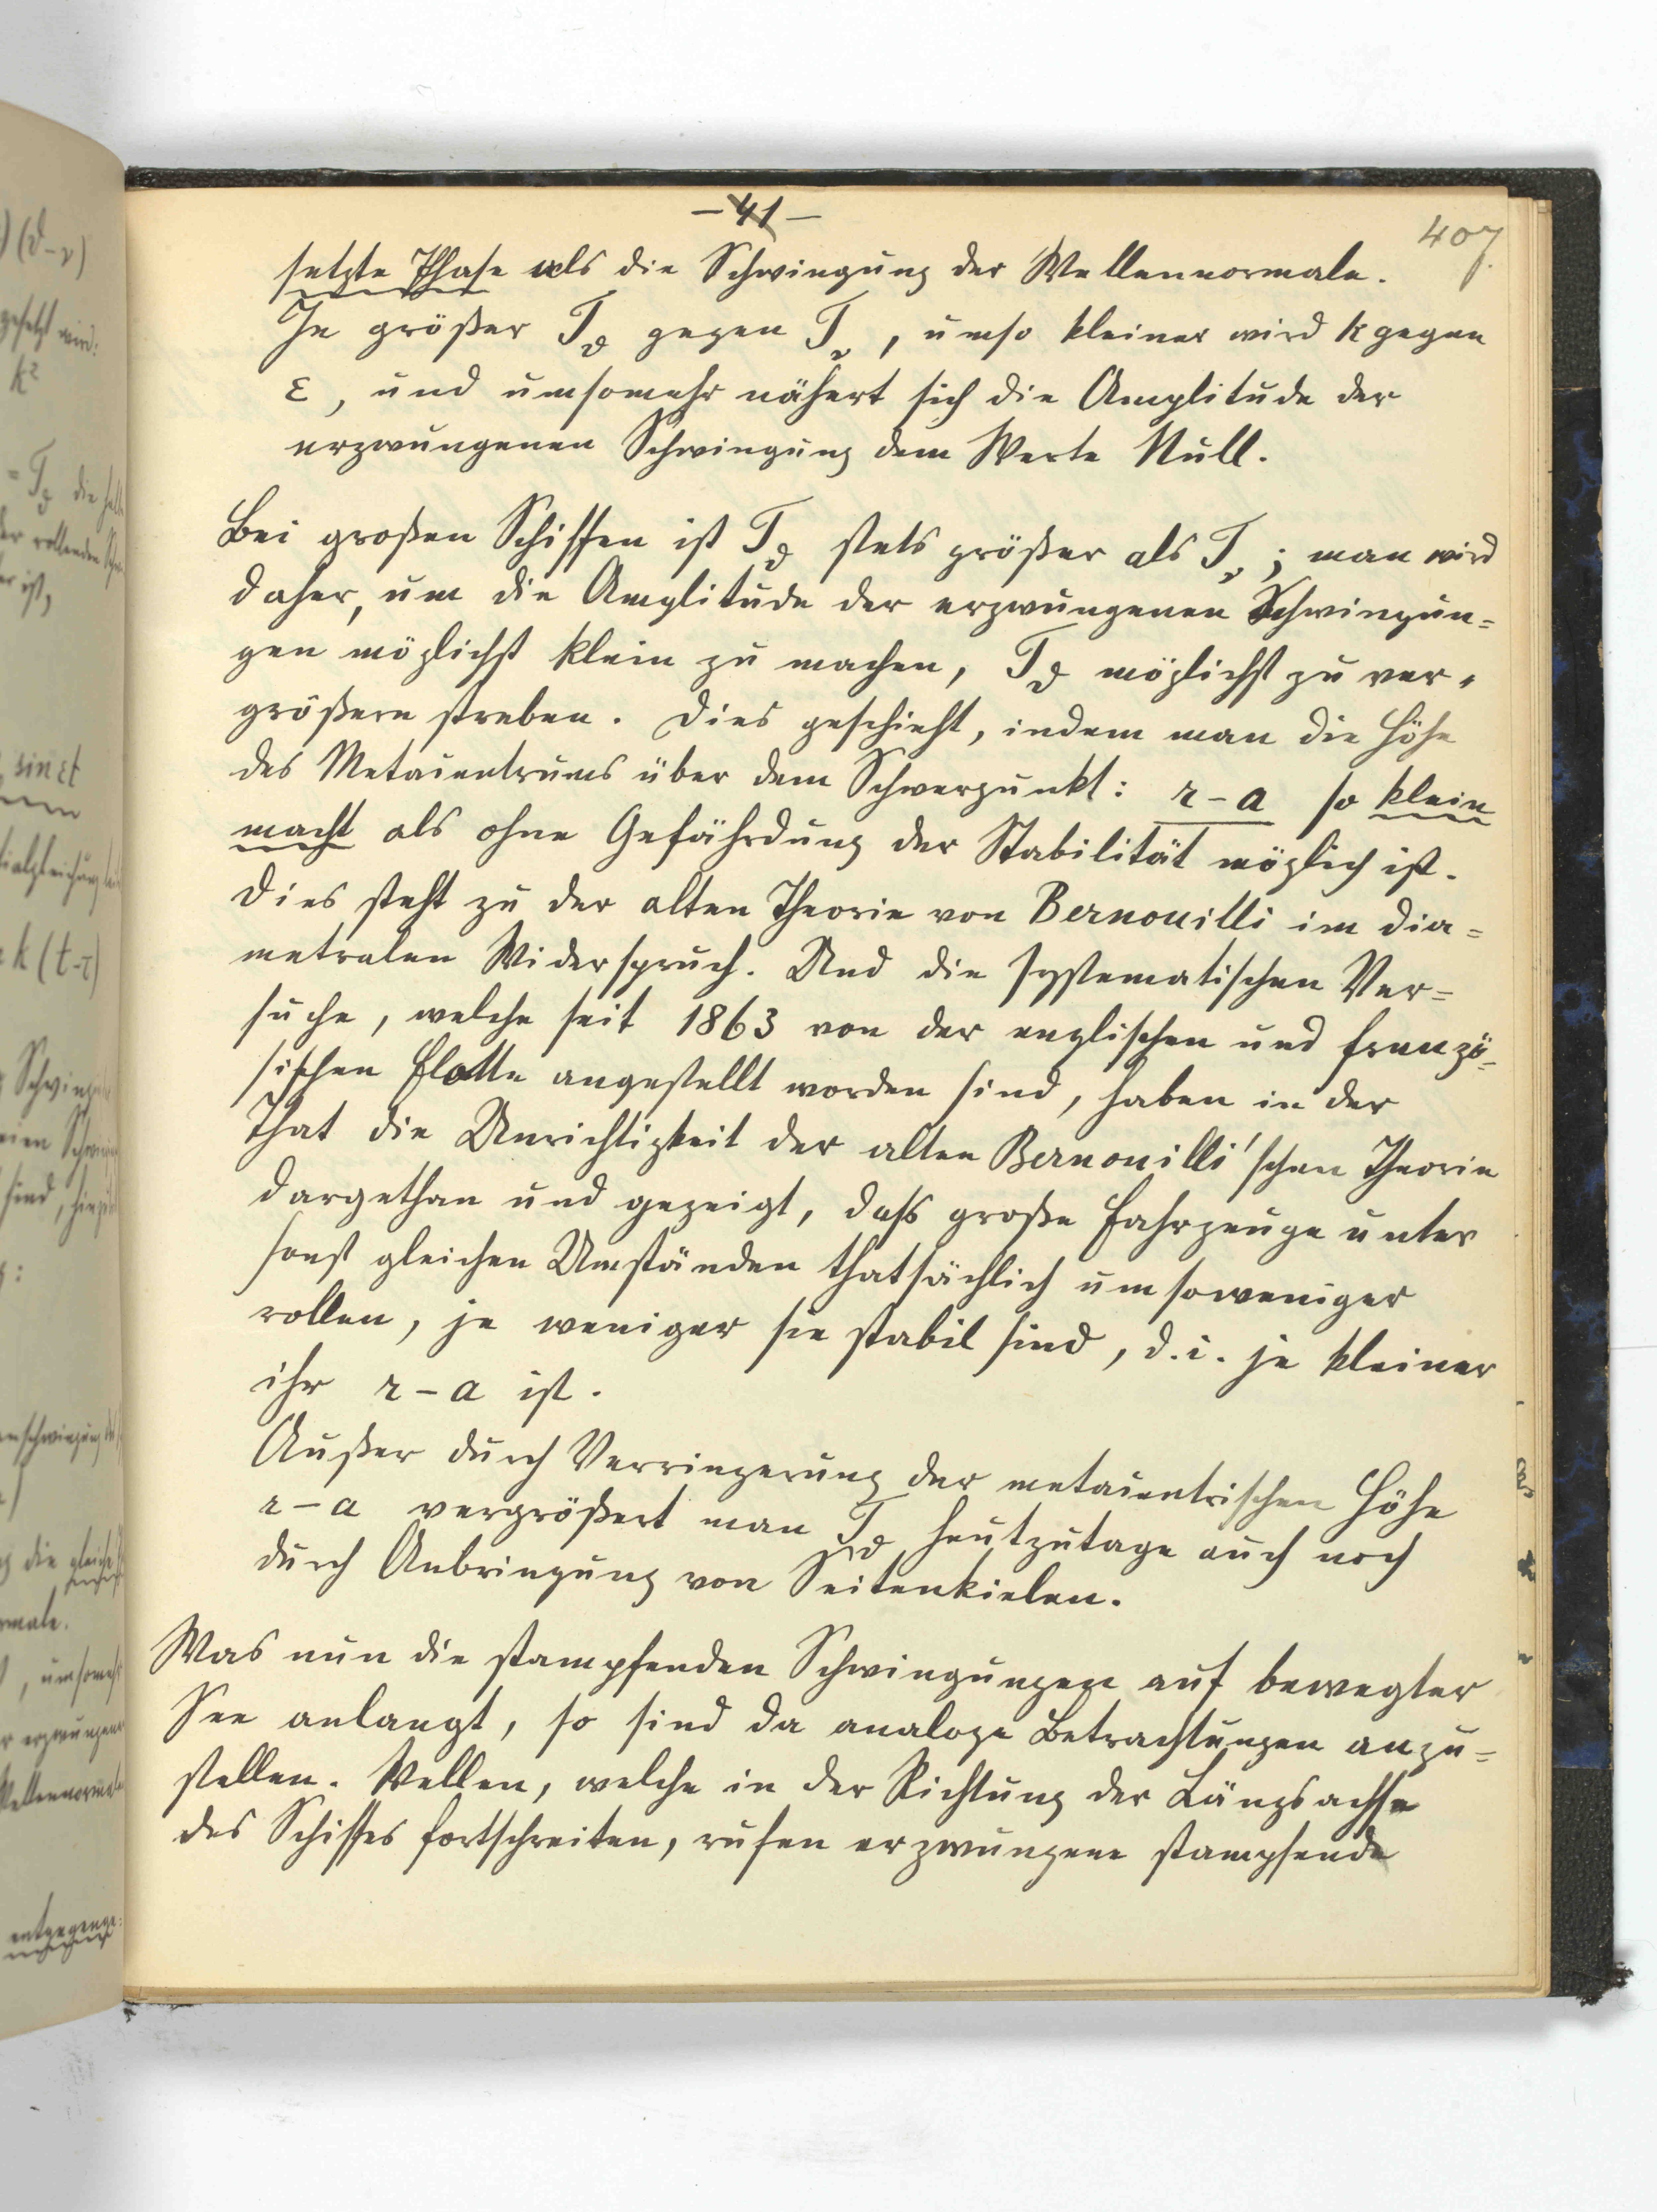 ) (ϑ-ν)
k²
sin εt
k (t-τ)
entgegenge-
- 41 -
407.
setzte Phase als die Schwingung der Wellennormale.
Je größer T_ϑ gegen T_ν, umso kleiner wird k gegen
ε, und umsomehr nähert sich die Amplitude der
erzwungenen Schwingung dem Werte Null.
Bei großen Schiffen ist T_ϑ stets größer als T_ν; man wird
daher, um die Amplitude der erzwungenen Schwingun=
gen möglichst klein zu machen, T_ϑ möglichst zu ver=
größern streben. Dies geschieht, indem man die Höhe
des Metacentrums über dem Schwerpunkt: r-a so klein
macht als ohne Gefährdung der Stabilität möglich ist.
Dies steht zu der alten Theorie von Bernouilli im dia=
metralen Widerspruch. Und die systematischen Ver=
suche, welche seit 1863 von der englischen und franzö=
sischen Flotte angestellt worden sind, haben in der
That die Unrichtigkeit der alten Bernouilli'schen Theorie
dargethan und gezeigt, dass große Fahrzeuge unter
sonst gleichen Umständen thatsächlich umsoweniger
rollen, je weniger sie stabil sind, d.i. je kleiner
ihr r-a ist.
Außer durch Verringerung der metacentrischen Höhe
r-a vergrößert man T_ϑ heutzutage auch noch
durch Anbringung von Seitenkielen.
Was nun die stampfenden Schwingungen auf bewegter
See anlangt, so sind da analoge Betrachtungen anzu=
stellen. Wellen, welche in der Richtung der Längsachse
des Schiffes fortschreiten, rufen erzwungene stampfende